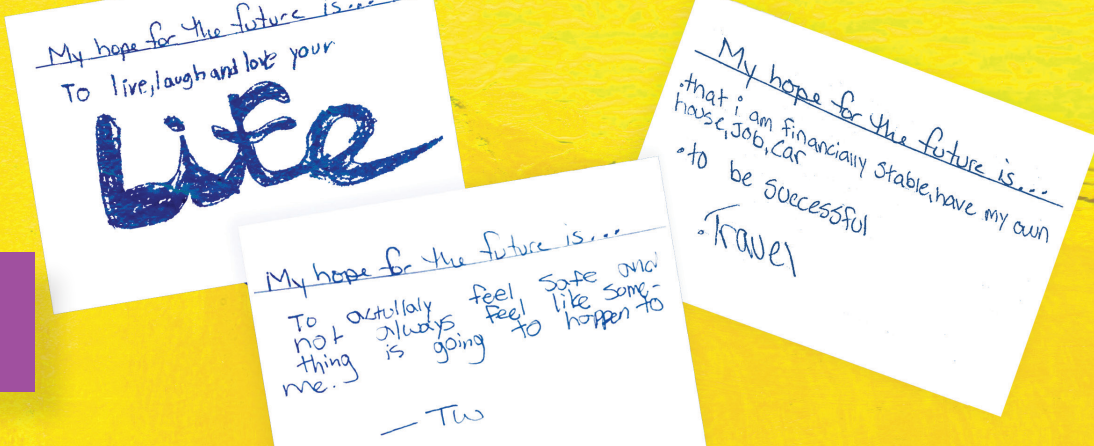 My hope for the future is...
To live, laugh and love your
Life
My hope for the future is...
To actullaly feel safe and
not always feel like some-
thing is going to happen to
me.
— TW
My hope for the future is...
·that i am financially stable, have my own
house, Job, car
·to be successful
·Travel